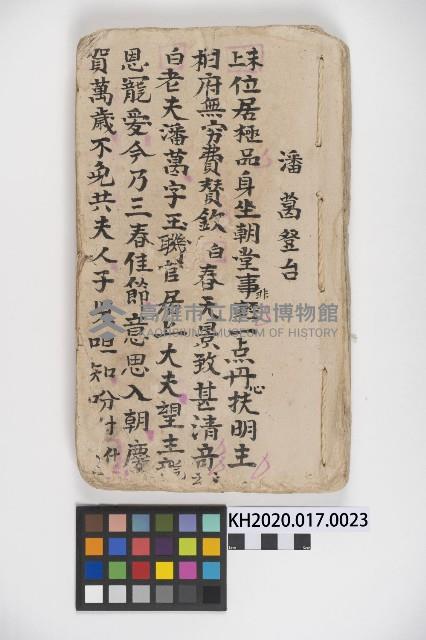 潘葛登台
末上位居極品身坐朝堂事非一点丹心扶明主
相府無穷費賛欽白春天景致甚清奇
白老夫潘葛字玉聯官居大夫望主
恩寵爱今乃三春佳節意思入朝慶
賀萬歲不免共夫人子知吩咐件
高雄市立歷史博物館
KAOHSIUNG MUSEUM OF HISTORY
KH2020.017.0023